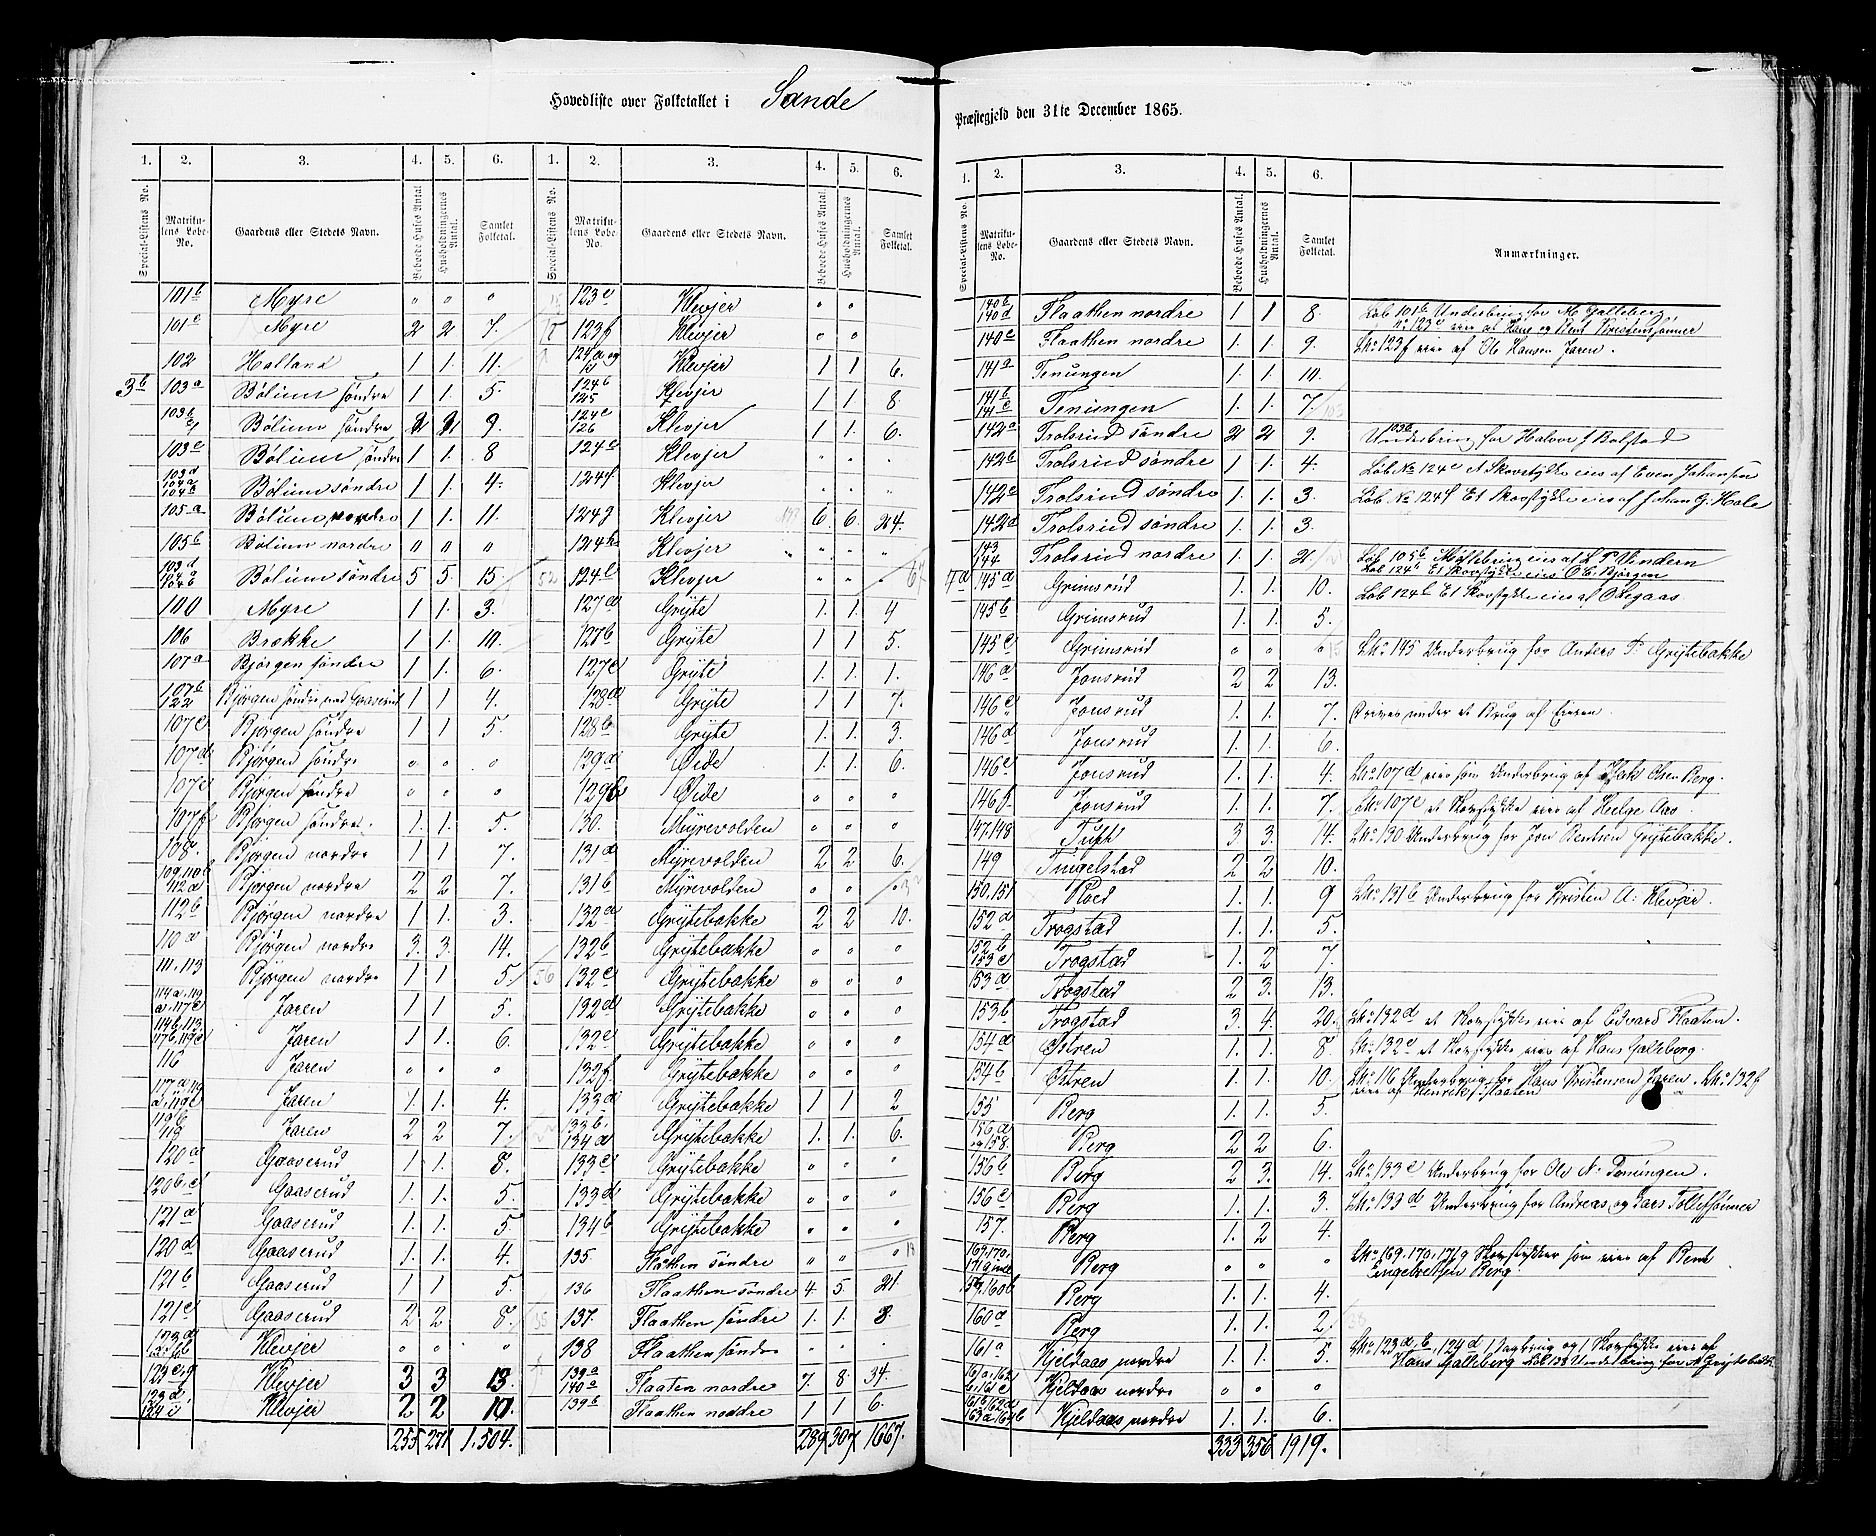 Hovedliste over Folketallet i Sande
Præstegjeld den 31te December 1865.
1. 2. 3. 4. 5. 6. 1. 2. 3. 4. 5. 6.
Special-Listens No. Matrikulens Løbe-No. Gaardens eller Stedets Navn. Beboede Huses Antal. Husholdningernes Antal. Samlet Folketal. Special-Listens No. Matrikulens Løbe-No. Gaardens eller Stedets Navn. Beboede Huses Antal. Husholdningernes Antal. Samlet Folketal.
101b Myre " " " 123e Klevjer " "
101c Myre 2 2 7 123f Klevjer " "
102 Holland 1 1. 11. 124a og Klevjer 1 1 6.
3b 103a Bølum søndre 1 1. 5. 124b 125 Klevjer 1 1. 8.
103b Bølum søndre 2 2 9. 124c 126 Klevjer 1 1. 6.
103c Bølum søndre 1 1. 8 124e Klevjer " " "
103d 104a 104b Bølum søndre 1 1. 4. 124f Klevjer " " "
105a Bølum nordre 1 1. 11. 124g Klevjer 6. 6. 24.
105b Bølum nordre " " " 124h Klevjer " " "
Bølum søndre 5 5. 15. 124i Klevjer " " "
100 Myre 1 1. 3. 127a Grijte 1. 1. 4
106 Brække 1 1. 10. 127b Grijte 1 1 5.
107a Bjørgen søndre 1 1. 6. 127c Grijte 1. 1. 1.
107b 122 Bjørgen søndre med Gaaserud 1 1. 4. 128a Grijte 1 1 7.
107c Bjørgen søndre 1 1 5. 128b Grijte 1 1. 3.
107d Bjørgen søndre " " " 129a Øide 1. 1. 6.
107e Bjørgen søndre " " " 129b Øide " " "
107f Bjørgen søndre. 1. 1. 5. 130. Myrevolden " " "
108. Bjørgen nordre 1 1 7. 131a Myrevolden 2 2 6.
109, 110b 112a Bjørgen nordre 2 2 7. 131b Myrevolden " " "
112b Bjørgen nordre 1 1. 3. 132a Grijtebakke 2 2 10.
110a Bjørgen nordre 3. 3. 14. 132b Grijtebakke " " "
111. 113 Bjørgen nordre 1 1 5. 132c Grijtebakke " " "
Jaren 1 1 5. 132d Grijtebakke " " "
Jaren 1 1. 6. 132e Grijtebakke " " "
116 Jaren " " " 132f. Grijtebakke " " "
Jaren 1. 1. 4. 133a Grijtebakke 1 1 2
119 Jaren 2 2 7. 133b. 134a Grijtebakke 1. 1. 6.
120a Gaaserud 1 1. 8. 133c Grijtebakke " " "
120b.c Gaaserud 1. 1. 5. 133d Grijtebakke " " "
121a Gaaserud 1. 1. 5 134b Grijtebakke " " "
120d Gaaserud 1. 1. 4. 135. Flaathen søndre " " "
121b Gaaserud 1 1 5. 136 Flaathen søndre 4 5. 21.
121c Gaaserud 2 2 8. 137. Flaathen søndre 1. 1. 8.
Klevjer " " " 138 Flaathen søndre " " "
123c,g Klevjer 3 3 13. 139a 140a Flaaten nordre 7. 8. 34.
Klevjer 2 2 10. 139b Flaathen noddre 1 1 6.
255 271 1.504. 289 307 1667.
1. 2. 3. 4. 5. 6.
Special-Listens No. Matrikulens Løbe-No. Gaardens eller Stedets Navn. Beboede Huses Antal. Husholdningernes Antal. Samlet Folketal. Anmærkninger.
140b 140d Flaathen nordre 1. 1 8. Løb 101b Underbrug for M Galleberg
No 123e eies af Hans og Bent Kristensønner
140c Flaathen nordre 1. 1. 9. LNo 123f eies af Ole Hansen Jaren.
141a Tenungen 1. 1. 10.
141b 141c Tenungen 1. 1. 7.
142a Trolsrud søndre 2 2 9. 103b Underbrug for Halvor J Bolstad
142b Trolsrud søndre 1. 1. 4. Løb No 124e et Skovstykke eies af Even Johansen
142c Trolsrud søndre 1. 1. 3. Løb No 124f Et Skovstykke eies af Johan G. Hole
142d Trolsrud søndre 1. 1. 3.
143 144 Trolsrud nordre 1. 1. 2 Løb 105b Møllebrug eies af
Løb 124h Et Skovstykke eies O C Bjørgen
7a 145a Grimsrud 1. 1. 10. Løb 124i Et Skovstykke eies af
145b Grimsrud 1. 1. 5.
145c Grimsrud " " " LNo 145 Underbrug for Anders P. Grijtebakke
146a Jonsrud 2 2 13.
146c Jonsrud 1. 1. 7. Drives under et Brug af Eieren.
146d Jonsrud 1. 1. 6.
146e Jonsrud 1. 1. 4. LNo 107d eies som Underbrug af Olsen Berg.
146f. Jonsrud 1. 1. 7. LNo 107e et Skovstykke eies af Helge Aas.
147.148 Tuft 3 3. 14. LNo 130 Underbrug for Jon Bentsen Grijtebakke.
149 Tingelstad 2 2 10.
150.151 Roed 1. 1. 9 LNo 131b Underbrug for Kristen A. Klevjer.
152a Trogstad 1. 1. 5.
152b 153c Trogstad 1. 2 7.
153a Trogstad 2 3. 13.
153b Trogstad 3. 4. 20. LNo 132d et Skovstykke eies af Edvard Flaaten.
154a Østren 1. 1. 8. LNo 132e et Skovstykke eies af Hans Galleberg.
154b Østren 1. 1. 10. LNo 116 Underbrug for Hans Kristensen Jaren. LNo 132f
eies af Henrik Flaaten
155 Berg 1. 1. 5.
156a og 158. Berg 2 2 6.
156b Berg 2 3. 14. LNo 133c Underbrug for Ole N. Tenungen.
156c Berg 1. 1. 3. LNo 133d Underbrug for Andreas og Lars Tollefsønner
157. Berg 1. 2 4.
169.170. Berg " " " LNo 169. 170. 171g Skovstykker som eies af Bent
Engebretsen Berg.
160b Berg 1. 1. 4.
160a Berg 1. 1. 2.
161a Kjeldaas nordre 1. 1. 5. LNo 123d, b, 124d 1 Sagbrug og 1 Skovstykke eies af
Hans Galleberg Løb 138 Underbrug for A Grijtebak
Kjeldaas nordre " " "
Kjeldaas nordre 1. 1. 6.
333 356 1919.